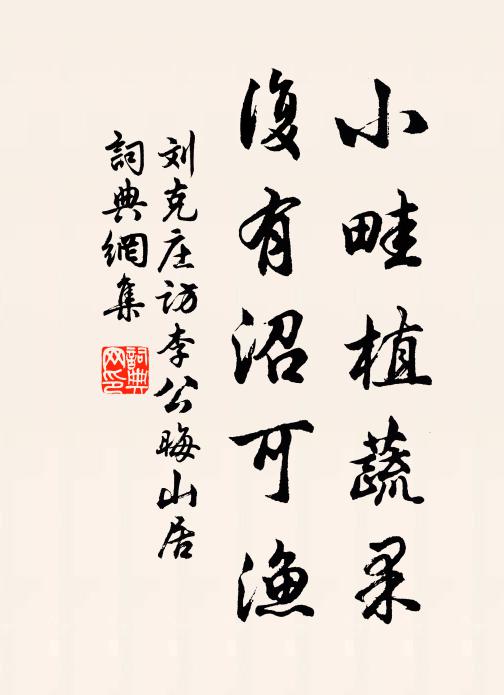 小畦植蔬果
復有沼可漁
刘克庄访李公晦山居
詞典網集
詞典网印